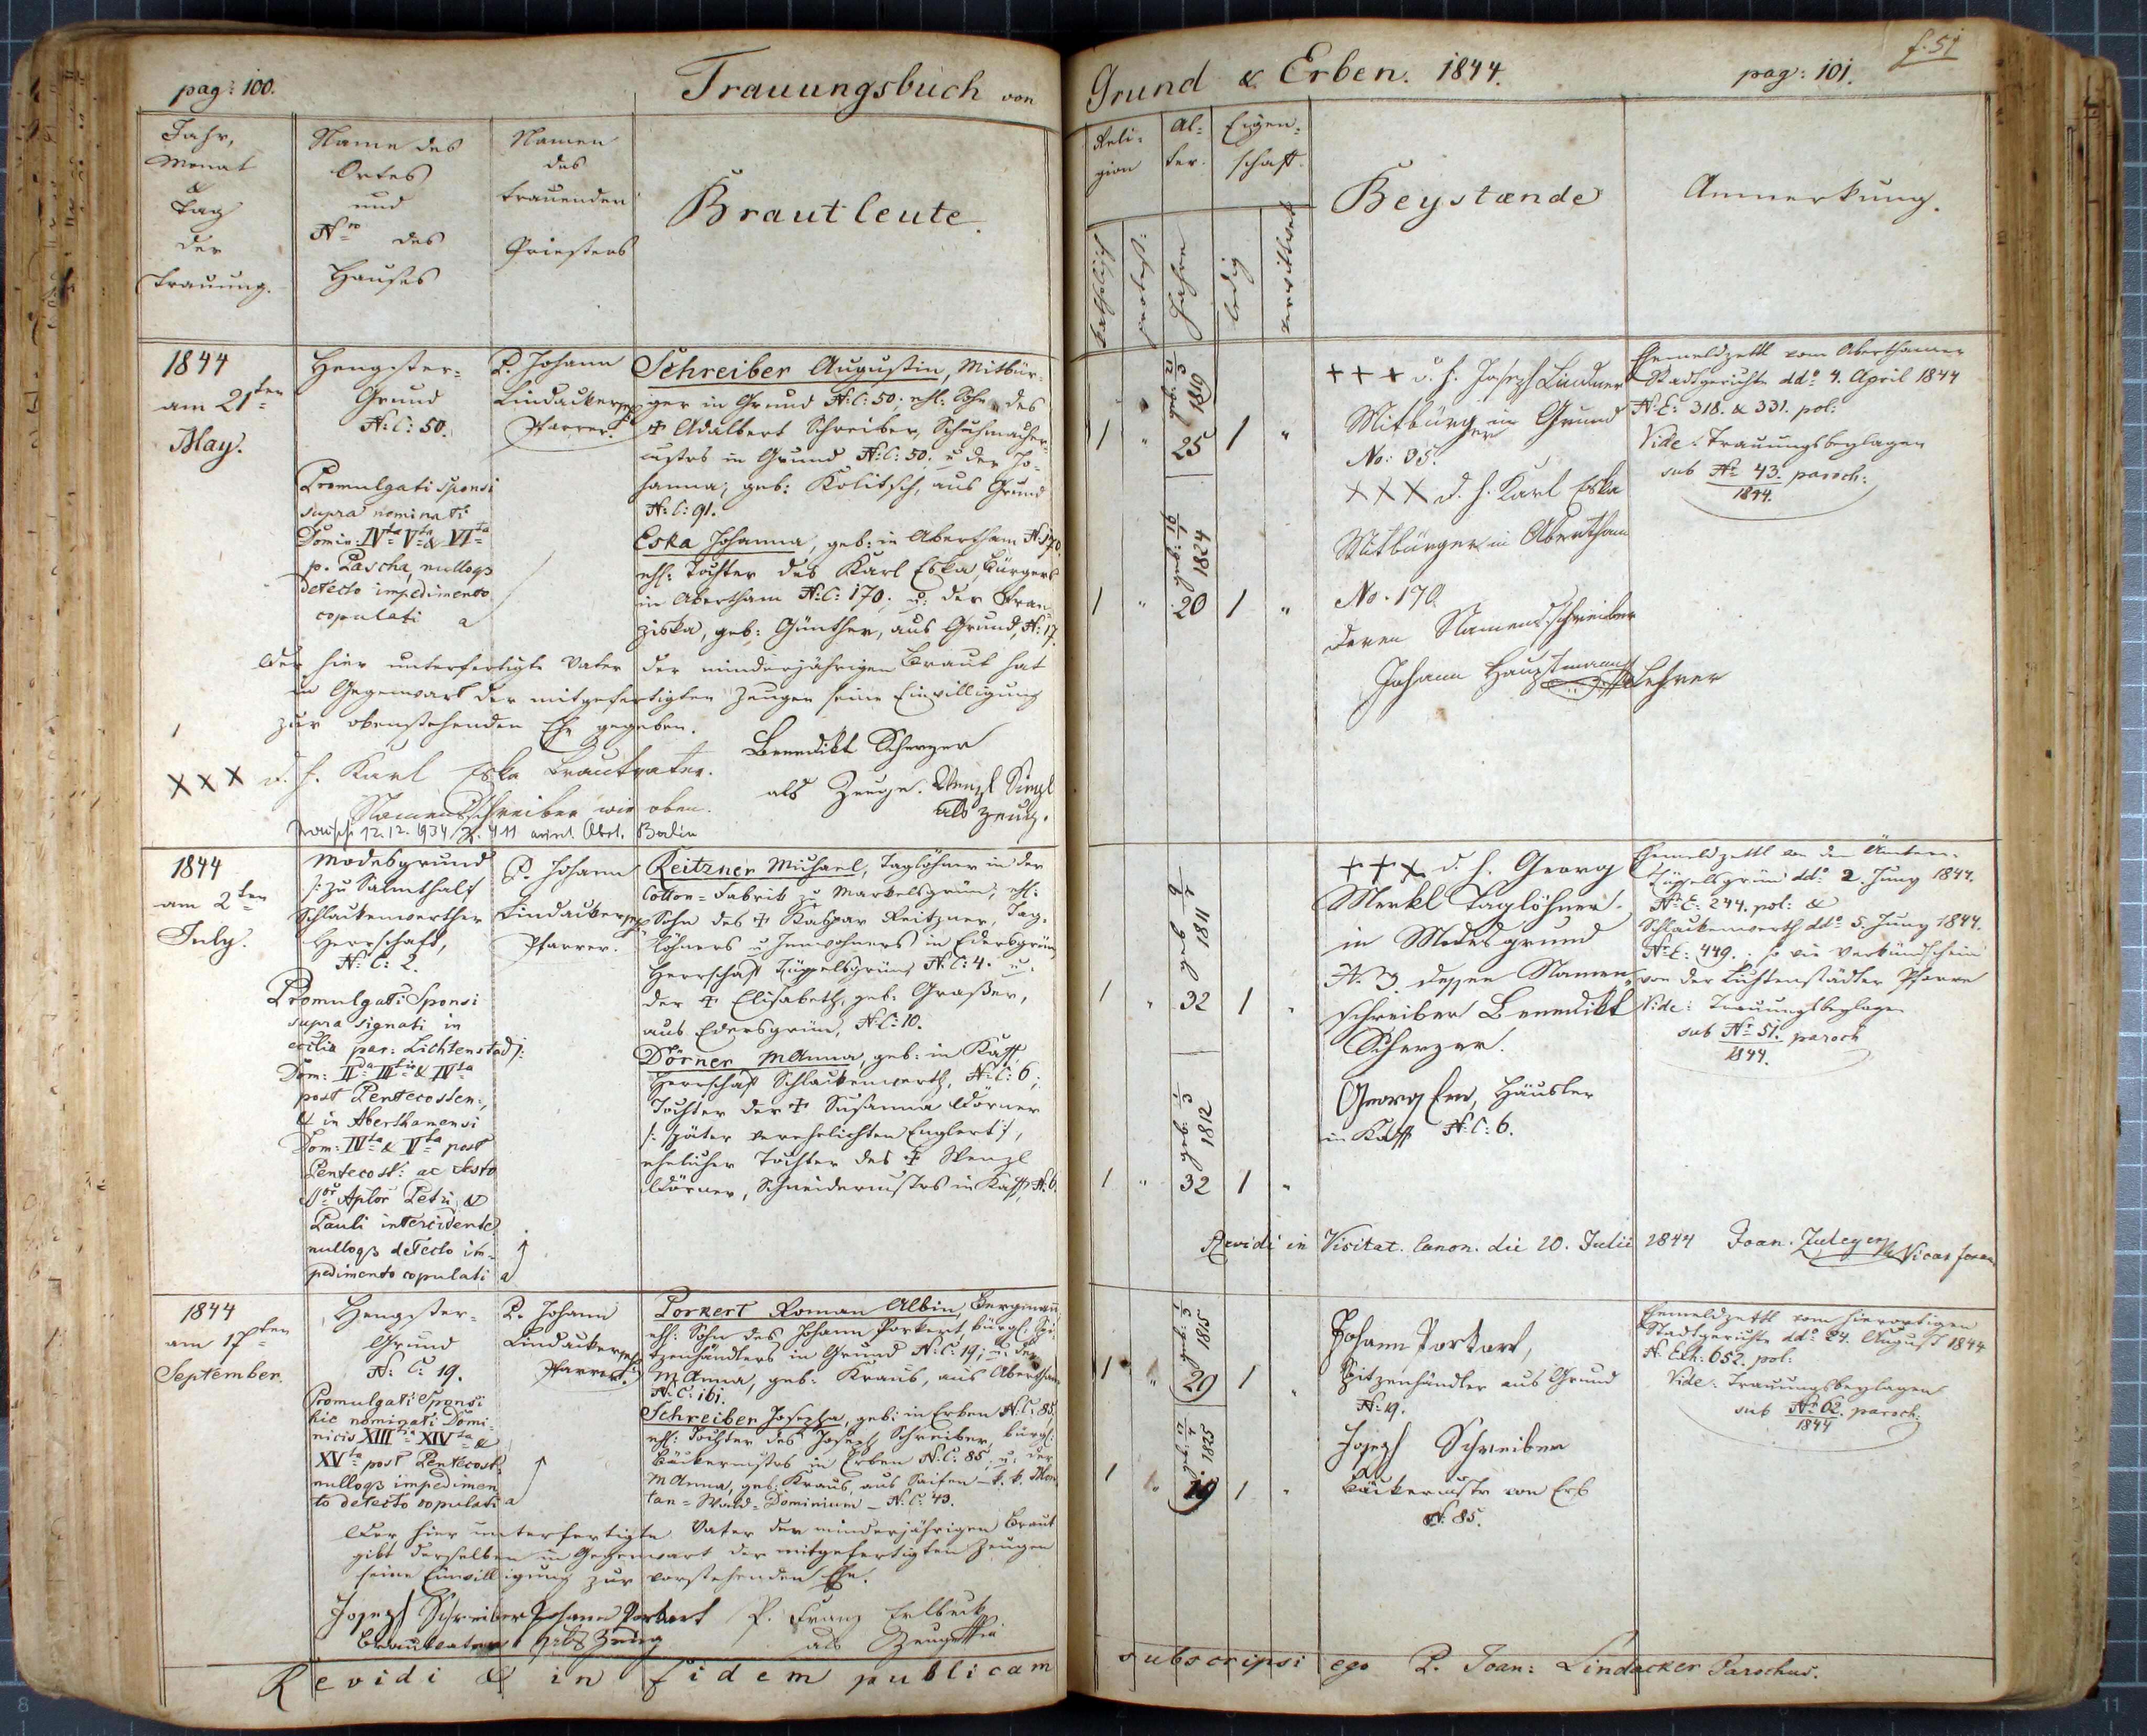 pag: 100.
Trauungsbuch von
Jahr,
Monat
&
Tag
der
Trauung.
Name des
Ortes
und
Nro des
Hauses
Namen
des
trauenden
Priesters
Brautleute.
1844
am 21ten
May.
Hengster-
Grund
N: C: 50.
Promulgati sponsi
supra nominati
Domin: IVta Vta & VIta
p. Pascha, nulloqs
detecto impedimento
copulati
P. Johann
Lindacker
Pfarrer.
Schreiber Augustin, Mitbür-
ger in Grund N: C: 50; ehl: Sohn des
† Adalbert Schreiber, Schuhmacher-
mstrs in Grund N: C: 50. u der Jo-
hanna, geb: Kolitsch, aus Grund
N: C: 91.
Eska Johanna, geb: in Abertham N: 170.
ehl: Tochter des Karl Eska, Bürgers
in Abertham N: C: 170; u: der Fran-
ziska, geb: Günther, aus Grund, N: 17.
Der hier unterfertigte Vater der minderjährigen Braut hat
in Gegenwart der mitgefertigten Zeugen seine Einwilligung
zur obenstehenden Ehe gegeben.
XXX d. h. Karl Eska Brautvater.
Namensschreiber wie oben.
Benedikt Scherzer
als Zeuge. Wenzl Singl
als Zeug.
12.12.1934
1844
am 2ten
July.
Modesgrund
/: zu Salmthal :/
Schlackenwerther
Herrschaft,
N: C: 2.
Promulgati Sponsi
supra signati in
ecclia par: Lichtenstad:
Dom: IIda IIItia & IVta
post Pentecosten:,
& in Aberthamensi
Dom: IVta & Vta post
Pentecost: ac festo
Aplor Petri &
Pauli intercidente
nulloqs detecto im-
pedimento copulati
P. Johann
Lindacker
Pfarrer.
Reitzner Michael, Taglöhner in der
Cotton-Fabrik zu Markelsgrün, ehl:
Sohn des † Kaspar Reitzner, Tag-
löhners u Inwohners in Edersgrün,
Herrschaft Tüppelsgrün, N: C: 4. u.
der † Elisabeth, geb: Graßer,
aus Edersgrün, N: C: 10.
Dörner MAnna, geb: in Kaff,
Herrschaft Schlackenwerth, N: C: 6;
Tochter der † Susanna Dörner
/: später verehelichten Englert :/,
ehelicher Tochter des † Wenzl
Dörner, Schneidermstrs in Kaff, N: 6.
1844
am 17ten
September.
Hengster-
Grund
N: C: 19.
Promulgati Sponsi
hic nominati Domi-
nicis XIIItia XIVta &
XVta post Pentecost:
nulloqs impedimen-
to detecto copulati
P. Johann
Lindacker
Pfarrer.
Porkert Roman Albin, Bergmann
ehl: Sohn des Johann Porkert, bürgl: Spi-
tzenhändlers in Grund N: C: 19; u: der
MAnna, geb: Kraus, aus Abertham
N: C: 161.
Schreiber Josepha, geb: in Erben N: C: 85,
ehl: Tochter des Joseph Schreiber, bürgl:
Bäckermstrs in Erben N: C: 85, u: der
MAnna, geb: Kraus, aus Saifen – k. k. Mon-
tan-Wald-Dominium – N: C: 43.
Der hier unterfertigte Vater der minderjährigen Braut
gibt derselben in Gegenwart der mitgefertigten Zeugen
seine Einwilligung zur vorstehenden Ehe.
Joseph Schreiber
Brautvater
Johann Porkert
als Zeug
P. Franz Erlbeck
als Zeuge
Revidi & in fidem publicam
f. 51
Grund & Erben. 1844.
pag: 101.
Reli-
gion
Al-
ter.
Eigen-
schaft.
katholisch
protest:
Jahre
ledig
verwittwet
Beystænde
Anmerkung.
1 " geb: 12/3 1819 25 1 "
1 " geb: 1824 20 1 "
+++ d. h. Joseph Lindner
Mitbürger in Grund
No: 35.
XXX d. h. Karl Eska
Mitbürger in Abertham
No. 170.
deren Namensschreiber
Johann Hauptmann Lehrer
Ehemeldzettl vom Aberthamer
Stadtgerichte ddo 4. April 1844
N: E: 318. & 331. pol:
Vide: Trauungsbeylagen
sub No 43. paroch:
1844.
1 " geb 9/7 1811 32 1 "
1 " geb: 1/3 1812 32 1 "
+++ d. h. Georg
Merkl Taglöhner
in Modesgrund
N. 3. dessen Namen-
schreiber Benedikt
Scherzer.
Georg Erm, Häusler
in Kaff N: C: 6.
Ehemeldzettl von den Ämtern:
Tüppelsgrün ddo 2. Juny 1844.
N: E: 244. pol: &
Schlackenwerth ddo 5. Juny 1844.
N: E: 449.; so wie Verkündschein
von der Lichtenstädter Pfarre
Vide: Trauungsbeylagen
sub No 51. paroch
1844.
Revidi in Visitat. Canon. die 20. Julii 1844 Joan. Zuleger Vicar foran.
1 " geb: 1/3 1815 29 1 "
1 " geb: 1825 19 1 "
Johann Porkert,
Spitzenhändler aus Grund
N: 19.
Joseph Schreiber
Bäckermstr von Erb
N: 85.
Ehemeldzettl vom hierortigen
Stadtgerichte ddo 24. August 1844
N: Exh: 652. pol:
Vide: Trauungsbeylagen
sub No 62. paroch:
1844
subscripsi ego P. Joan: Lindacker Parochus.